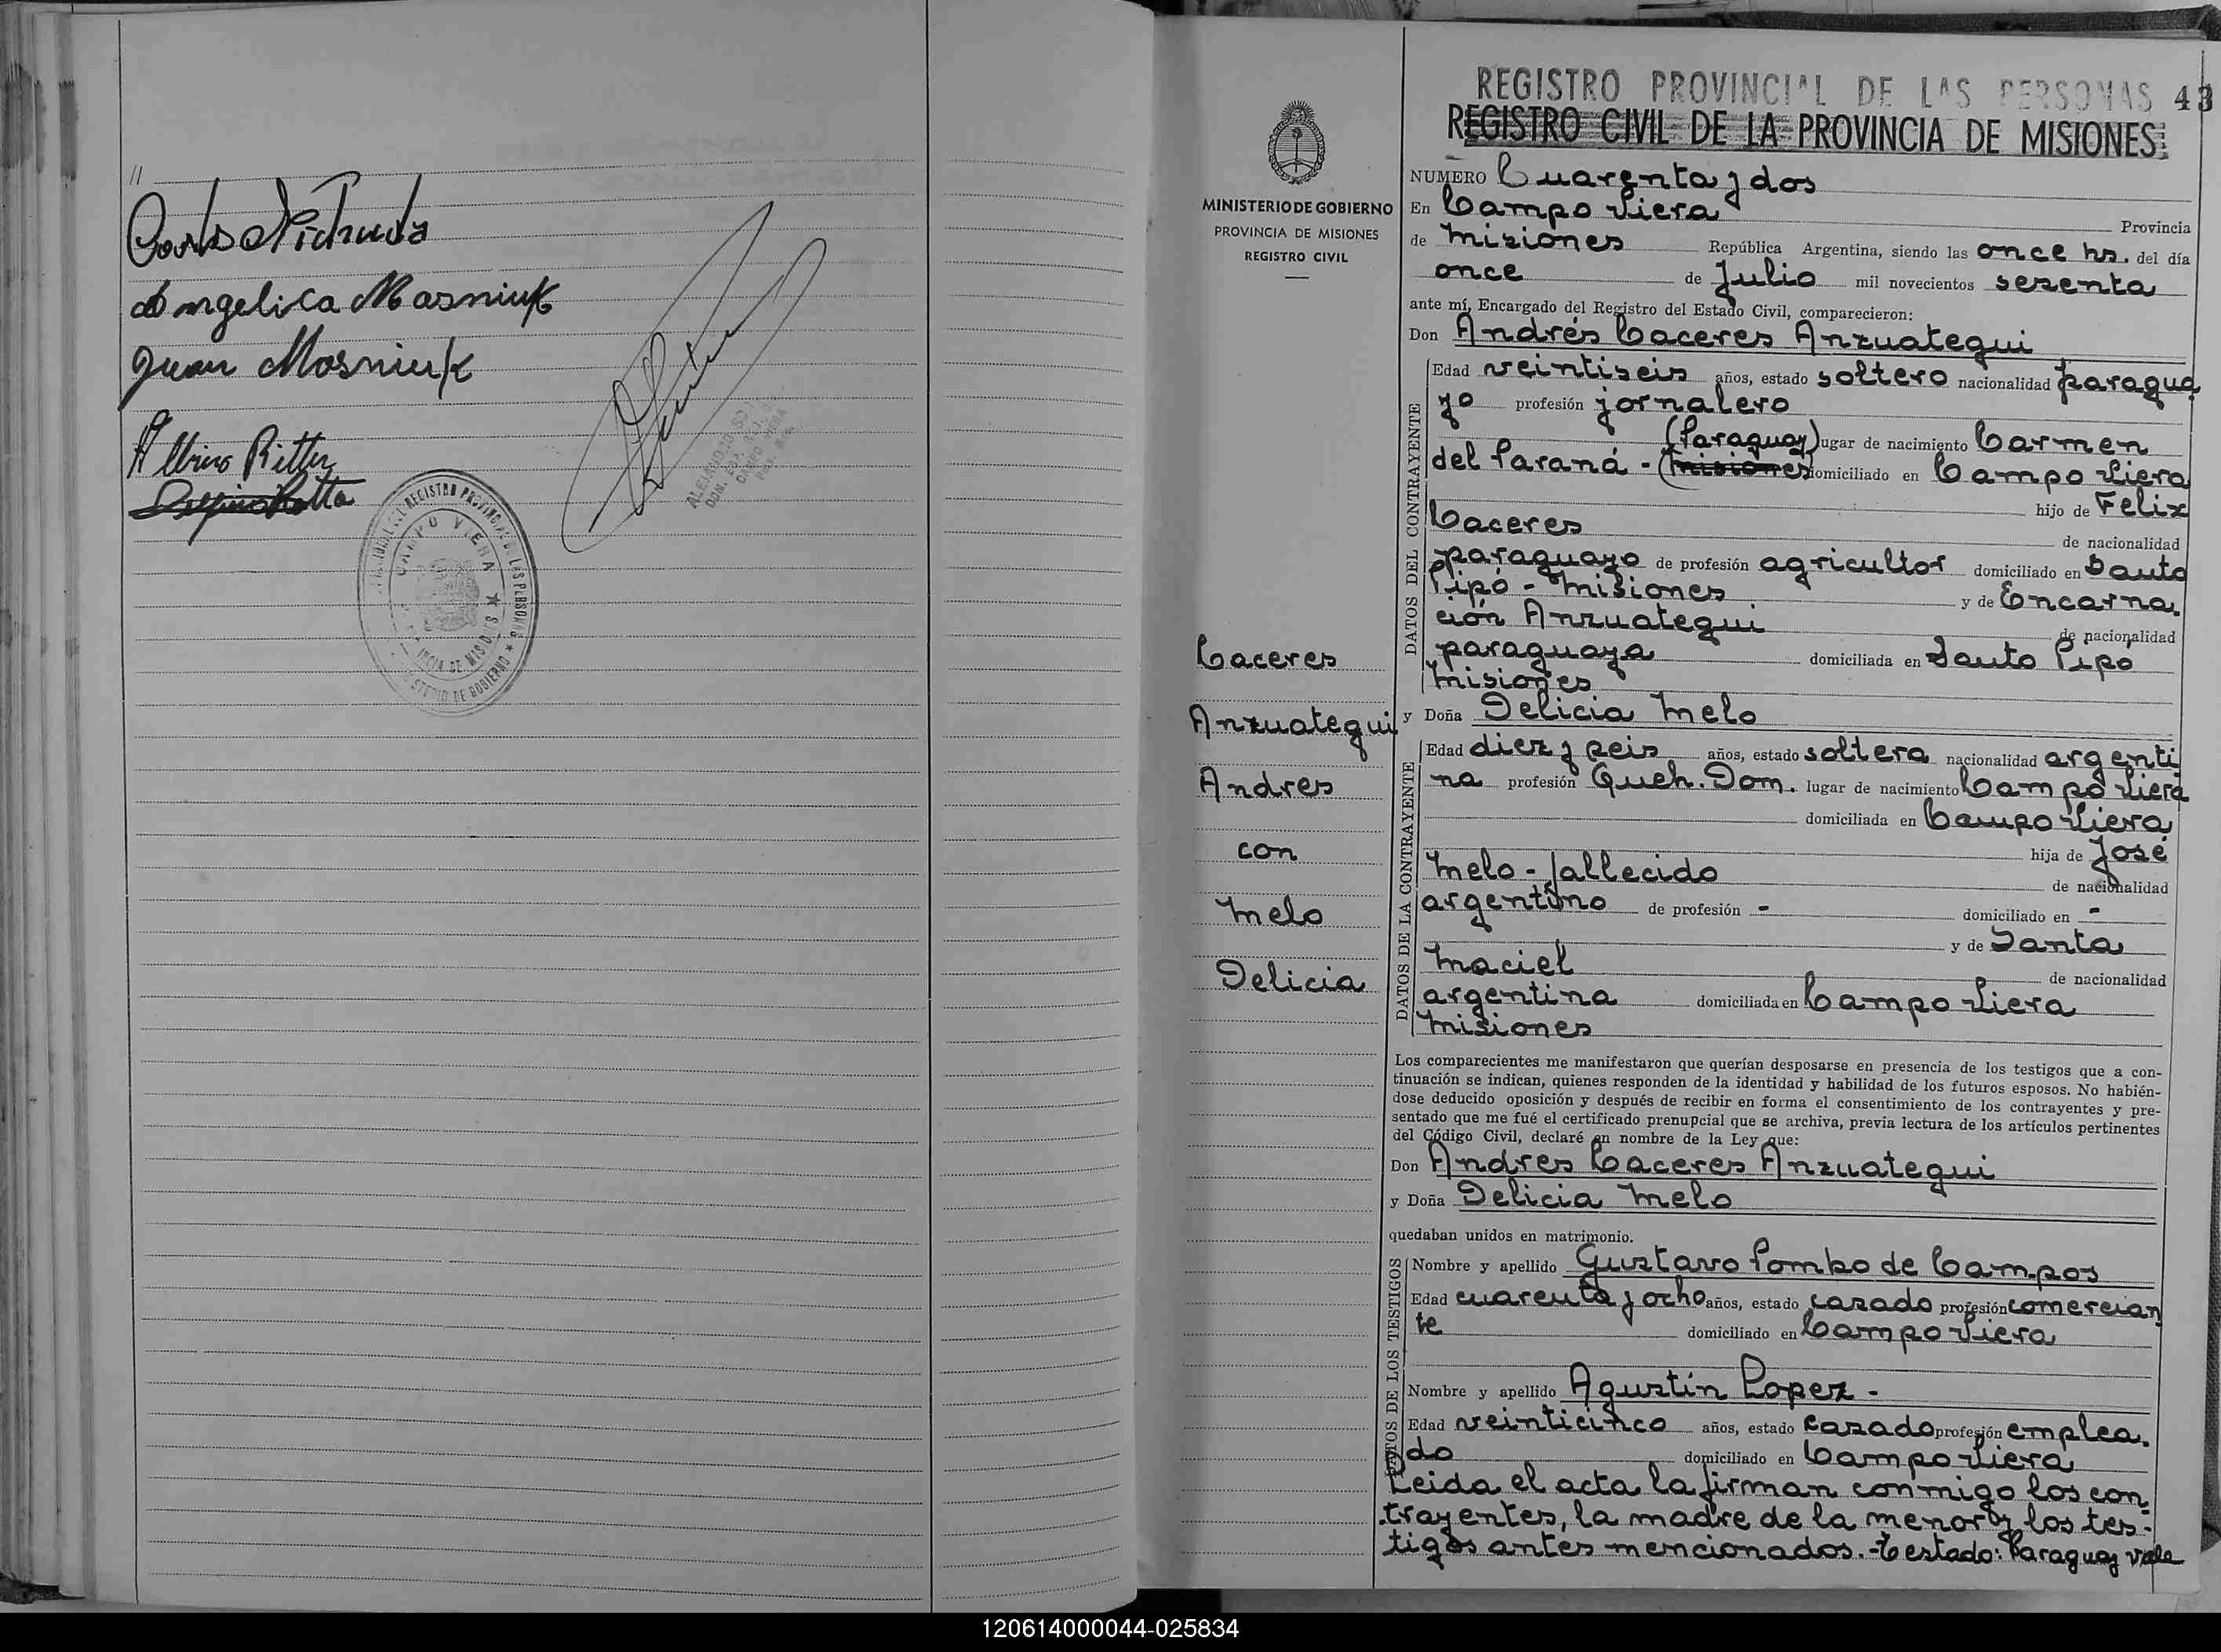 //
Angelica Mosniuk
Juan Mosniuk
Albino Ritter
REGISTRO PROVINCIAL DE LAS PERSONAS
CAMPO VIERA
PROVINCIA DE MISIONES
MINISTERIO DE GOBIERNO
REGISTRO PROVINCIAL DE LAS PERSONAS 43
REGISTRO CIVIL DE LA PROVINCIA DE MISIONES
MINISTERIO DE GOBIERNO
PROVINCIA DE MISIONES
REGISTRO CIVIL
Caceres
Anzuategui
Andres
con
Melo
Delicia
NUMERO Cuarenta y dos
En Campo Viera Provincia
de Misiones República Argentina, siendo las once hs. del día
once de Julio mil novecientos sesenta
ante mí, Encargado del Registro del Estado Civil, comparecieron:
Don Andrés Caceres Anzuategui
DATOS DEL CONTRAYENTE
Edad veintiseis años, estado soltero nacionalidad paragua
yo profesión jornalero
(Paraguay) lugar de nacimiento Carmen
del Paraná - (Misiones domiciliado en Campo Viera
hijo de Felix
Caceres de nacionalidad
paraguayo de profesión agricultor domiciliado en Santo
Pipó - Misiones y de Encarna
ción Anzuategui de nacionalidad
paraguaya domiciliada en Santo Pipó
Misiones
y Doña Delicia Melo
DATOS DE LA CONTRAYENTE
Edad diez y seis años, estado soltera nacionalidad argenti
na profesión Queh. Dom. lugar de nacimiento Campo Viera
domiciliada en Campo Viera
hija de José
Melo - fallecido de nacionalidad
argentino de profesión - domiciliado en -
y de Santa
Maciel de nacionalidad
argentina domiciliada en Campo Viera
Misiones
Los comparecientes me manifestaron que querían desposarse en presencia de los testigos que a con-
tinuación se indican, quienes responden de la identidad y habilidad de los futuros esposos. No habién-
dose deducido oposición y después de recibir en forma el consentimiento de los contrayentes y pre-
sentado que me fué el certificado prenupcial que se archiva, previa lectura de los artículos pertinentes
del Código Civil, declaré en nombre de la Ley que:
Don Andres Caceres Anzuategui
y Doña Delicia Melo
quedaban unidos en matrimonio.
DATOS DE LOS TESTIGOS
Nombre y apellido Gustavo Pombo de Campos
Edad cuarenta y ocho años, estado casado profesión comercian
te domiciliado en Campo Viera
Nombre y apellido Agustín Lopez -
Edad veinticinco años, estado casado profesión emplea.
do domiciliado en Campo Viera
Leida el acta la firman conmigo los con-
trayentes, la madre de la menor y los tes-
tigos antes mencionados. - Testado: Paraguay vale
120614000044-025834